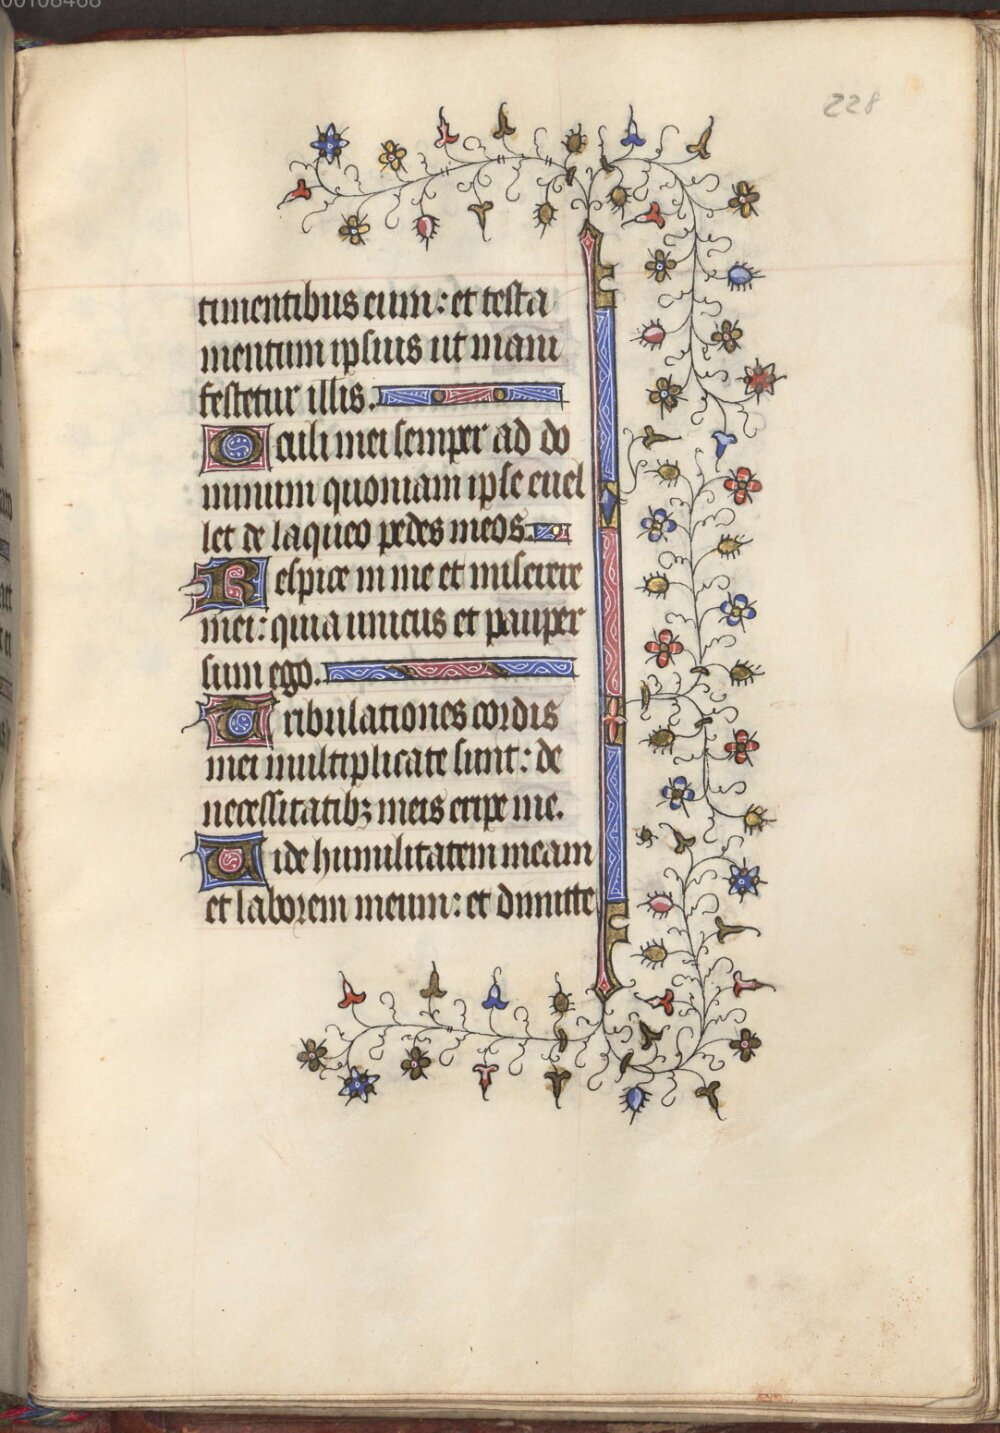 228
timentibus eum: et testa
mentum ipsius ut mani
festetur illis.
Oculi mei semper ad do
minum quoniam ipse evel
let de laqueo pedes meos.
Respice in me et miserere
mei: quia unicus et pauper
sum ego.
Tribulationes cordis
mei multiplicate sunt: de
necessitatibꝫ meis eripe me.
Vide humilitatem meam
et laborem meum: et dimitte